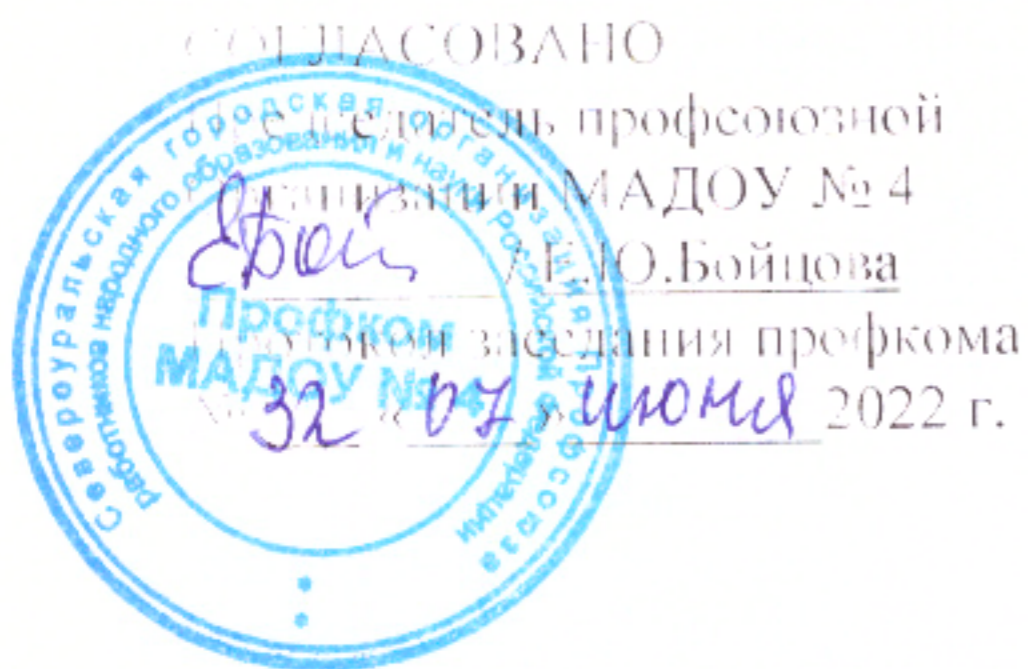 СОГЛАСОВАНО
Председатель профсоюзной
организации МАДОУ № 4
/Е.Ю.Бойцова
Протокол заседания профкома
№ 32 « 07 » июня 2022 г.
Североуральская городская организация Профсоюза
работников народного образования и науки Российской Федерации
Профком
МАДОУ №4